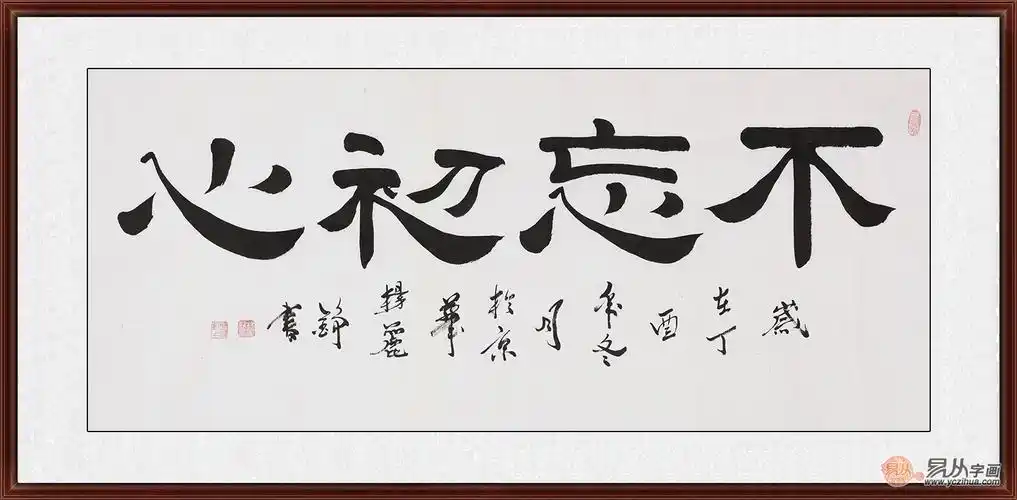 不忘初心
歲在丁酉年冬月於京華麗錚書
易从
易从字画
www.yczihua.com